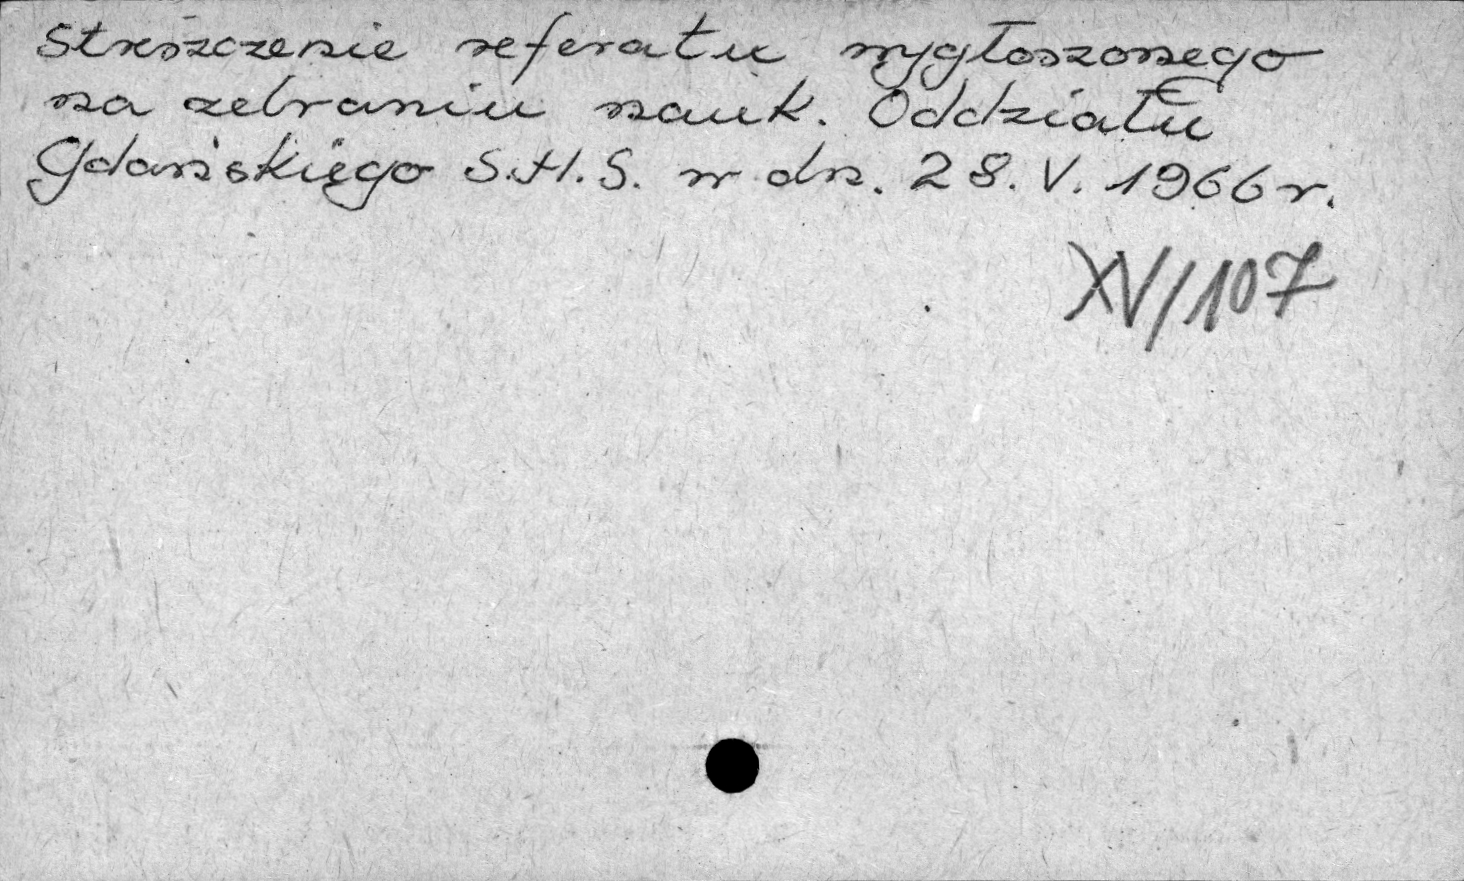 Streszczenie referatu wygłoszonego
na zebraniu nauk. Oddziału
Gdańskiego S.H.S. w dn. 28. V. 1966 r.
XV/107